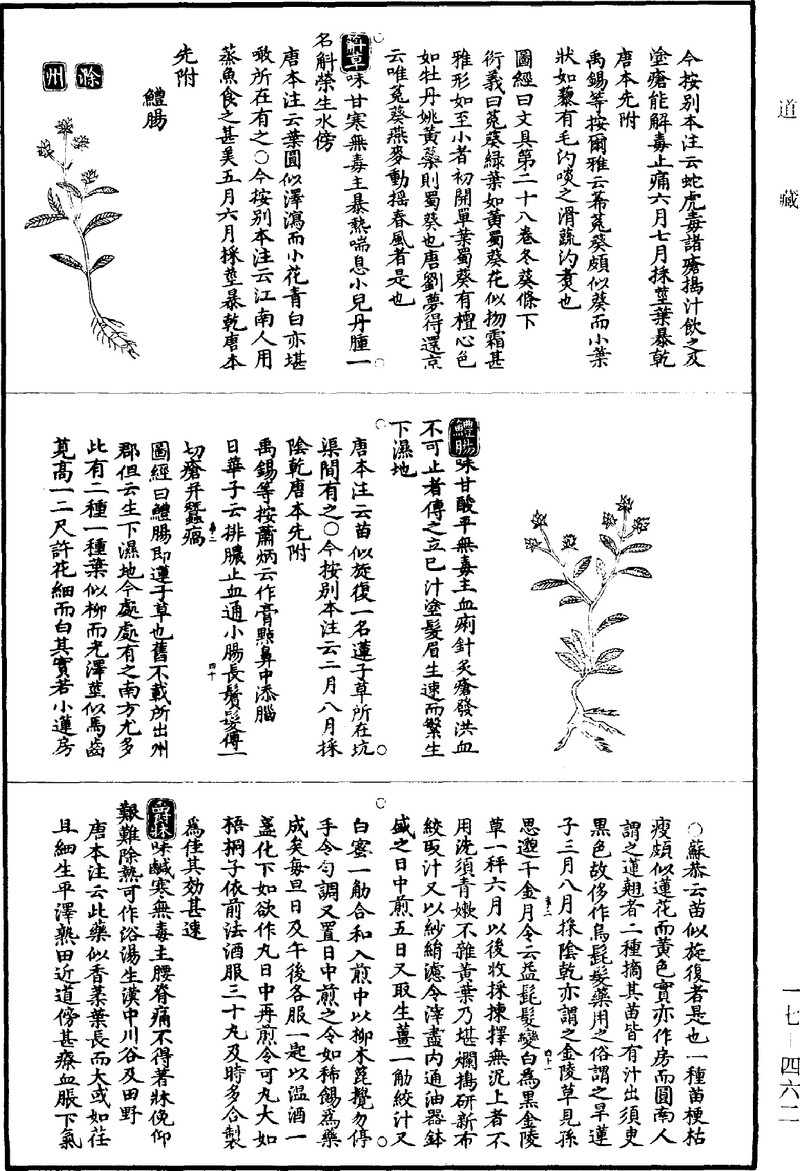 道藏
今按別本注云蛇虎毒諸瘡搗汁飲之及
塗瘡能解毒止痛六月七月採莖葉暴乾
唐本先附
禹錫等按爾雅云莃菟葵頗似葵而小葉
狀如藜有毛汋啖之滑蔬汋煑也
圖經曰文具第二十八卷冬葵條下
衍義曰菟葵綠葉如黃蜀葵花似拗霜甚
雅形如至小者初開單葉蜀葵有檀心色
如牡丹姚黃蘂則蜀葵也唐劉夢得還京
云唯菟葵燕麥動揺春風者是也
蔛草味甘寒無毒主暴熱喘息小兒丹腫一
名蔛榮生水傍
唐本注云葉圓似澤瀉而小花青白亦堪
噉所在有之○今按別本注云江南人用
蒸魚食之甚美五月六月採莖暴乾唐本
先附
鱧腸
滁州
鱧腸味甘酸平無毒主血痢針灸瘡發洪血
不可止者傅之立已汁塗髮眉生速而繁生
下濕地
唐本注云苗似旋復一名蓮子草所在坑
渠間有之○今按別本注云二月八月採
陰乾唐本先附
禹錫等按蕭炳云作膏點鼻中添腦
日華子云排膿止血通小腸長鬚髮傅一
切瘡并蠶瘑
圖經曰鱧腸即蓮子草也舊不載所出州
郡但云生下濕地今處處有之南方尤多
此有二種一種葉似柳而光澤莖似馬齒
莧高一二尺許花細而白其實若小蓮房
○蘇恭云苗似旋復者是也一種苗梗枯
瘦頗似蓮花而黃色實亦作房而圓南人
謂之蓮翹者二種摘其苗皆有汁出須臾
黑色故侈作烏髭髮藥用之俗謂之旱蓮
子三月八月採陰乾亦謂之金陵草見孫
思邈千金月令云益髭髮變白爲黑金陵
草一秤六月以後收採揀擇無泥土者不
用洗須青嫩不雜黃葉乃堪爛搗研新布
絞取汁又以紗絹濾令滓盡內通油器鉢
盛之日中煎五日又取生薑一觔絞汁又
白蜜一觔合和入煎中以柳木箆攪勿停
手令勻調又置日中煎之令如稀餳爲藥
成矣每旦日及午後各服一匙以溫酒一
盞化下如欲作丸日中再煎令可丸大如
梧桐子依前法酒服三十丸及時多合製
爲佳其効甚速
爵牀味鹹寒無毒主腰脊痛不得著牀俛仰
艱難除熱可作浴湯生漢中川谷及田野
唐本注云此藥似香葇葉長而大或如荏
且細生平澤熟田近道傍甚療血脹下氣
一七—四六二